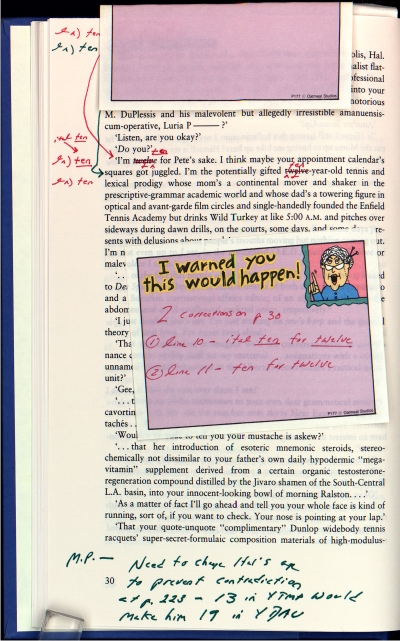 2x) ten
2x) ten
P177 © Oatmeal Studios
olis, Hal.
alist flat-
ofessional
into your
notorious
M. DuPlessis and his malevolent but allegedly irresistible amanuensis-
cum-operative, Luria P——— ?’
‘Listen, are you okay?’
‘Do you?’
ital ten
ten
‘I’m twelve for Pete’s sake. I think maybe your appointment calendar’s
ten
squares got juggled. I’m the potentially gifted twelve-year-old tennis and
lexical prodigy whose mom’s a continental mover and shaker in the
prescriptive-grammar academic world and whose dad’s a towering figure in
optical and avant-garde film circles and single-handedly founded the Enfield
Tennis Academy but drinks Wild Turkey at like 5:00 A.M. and pitches over
sideways during dawn drills, on the courts, some days, and some d re-
sents with delusions abou
I’m n
malev
‘. .
to De
and a
abdom
‘I ju
theory
‘Tha
nance c
unname
unit?’
‘Gee,
‘. . . t
cavortin
tachés . .
I warned you
this would happen!
2 corrections on p 30
① line 10 – ital ten for twelve
② line 11 – ten for twelve
P177 © Oatmeal Studios
‘Woul to tell you your mustache is askew?’
‘. . . that her introduction of esoteric mnemonic steroids, stereo-
chemically not dissimilar to your father’s own daily hypodermic “mega-
vitamin” supplement derived from a certain organic testosterone-
regeneration compound distilled by the Jivaro shamen of the South-Central
L.A. basin, into your innocent-looking bowl of morning Ralston. . . .’
‘As a matter of fact I’ll go ahead and tell you your whole face is kind of
running, sort of, if you want to check. Your nose is pointing at your lap.’
‘That your quote-unquote “complimentary” Dunlop widebody tennis
racquets’ super-secret-formulaic composition materials of high-modulus-
M.P.— Need to change Hal's age
30
to prevent contradiction
at p. 223 – 13 in YTMP would
make him 19 in YDAU